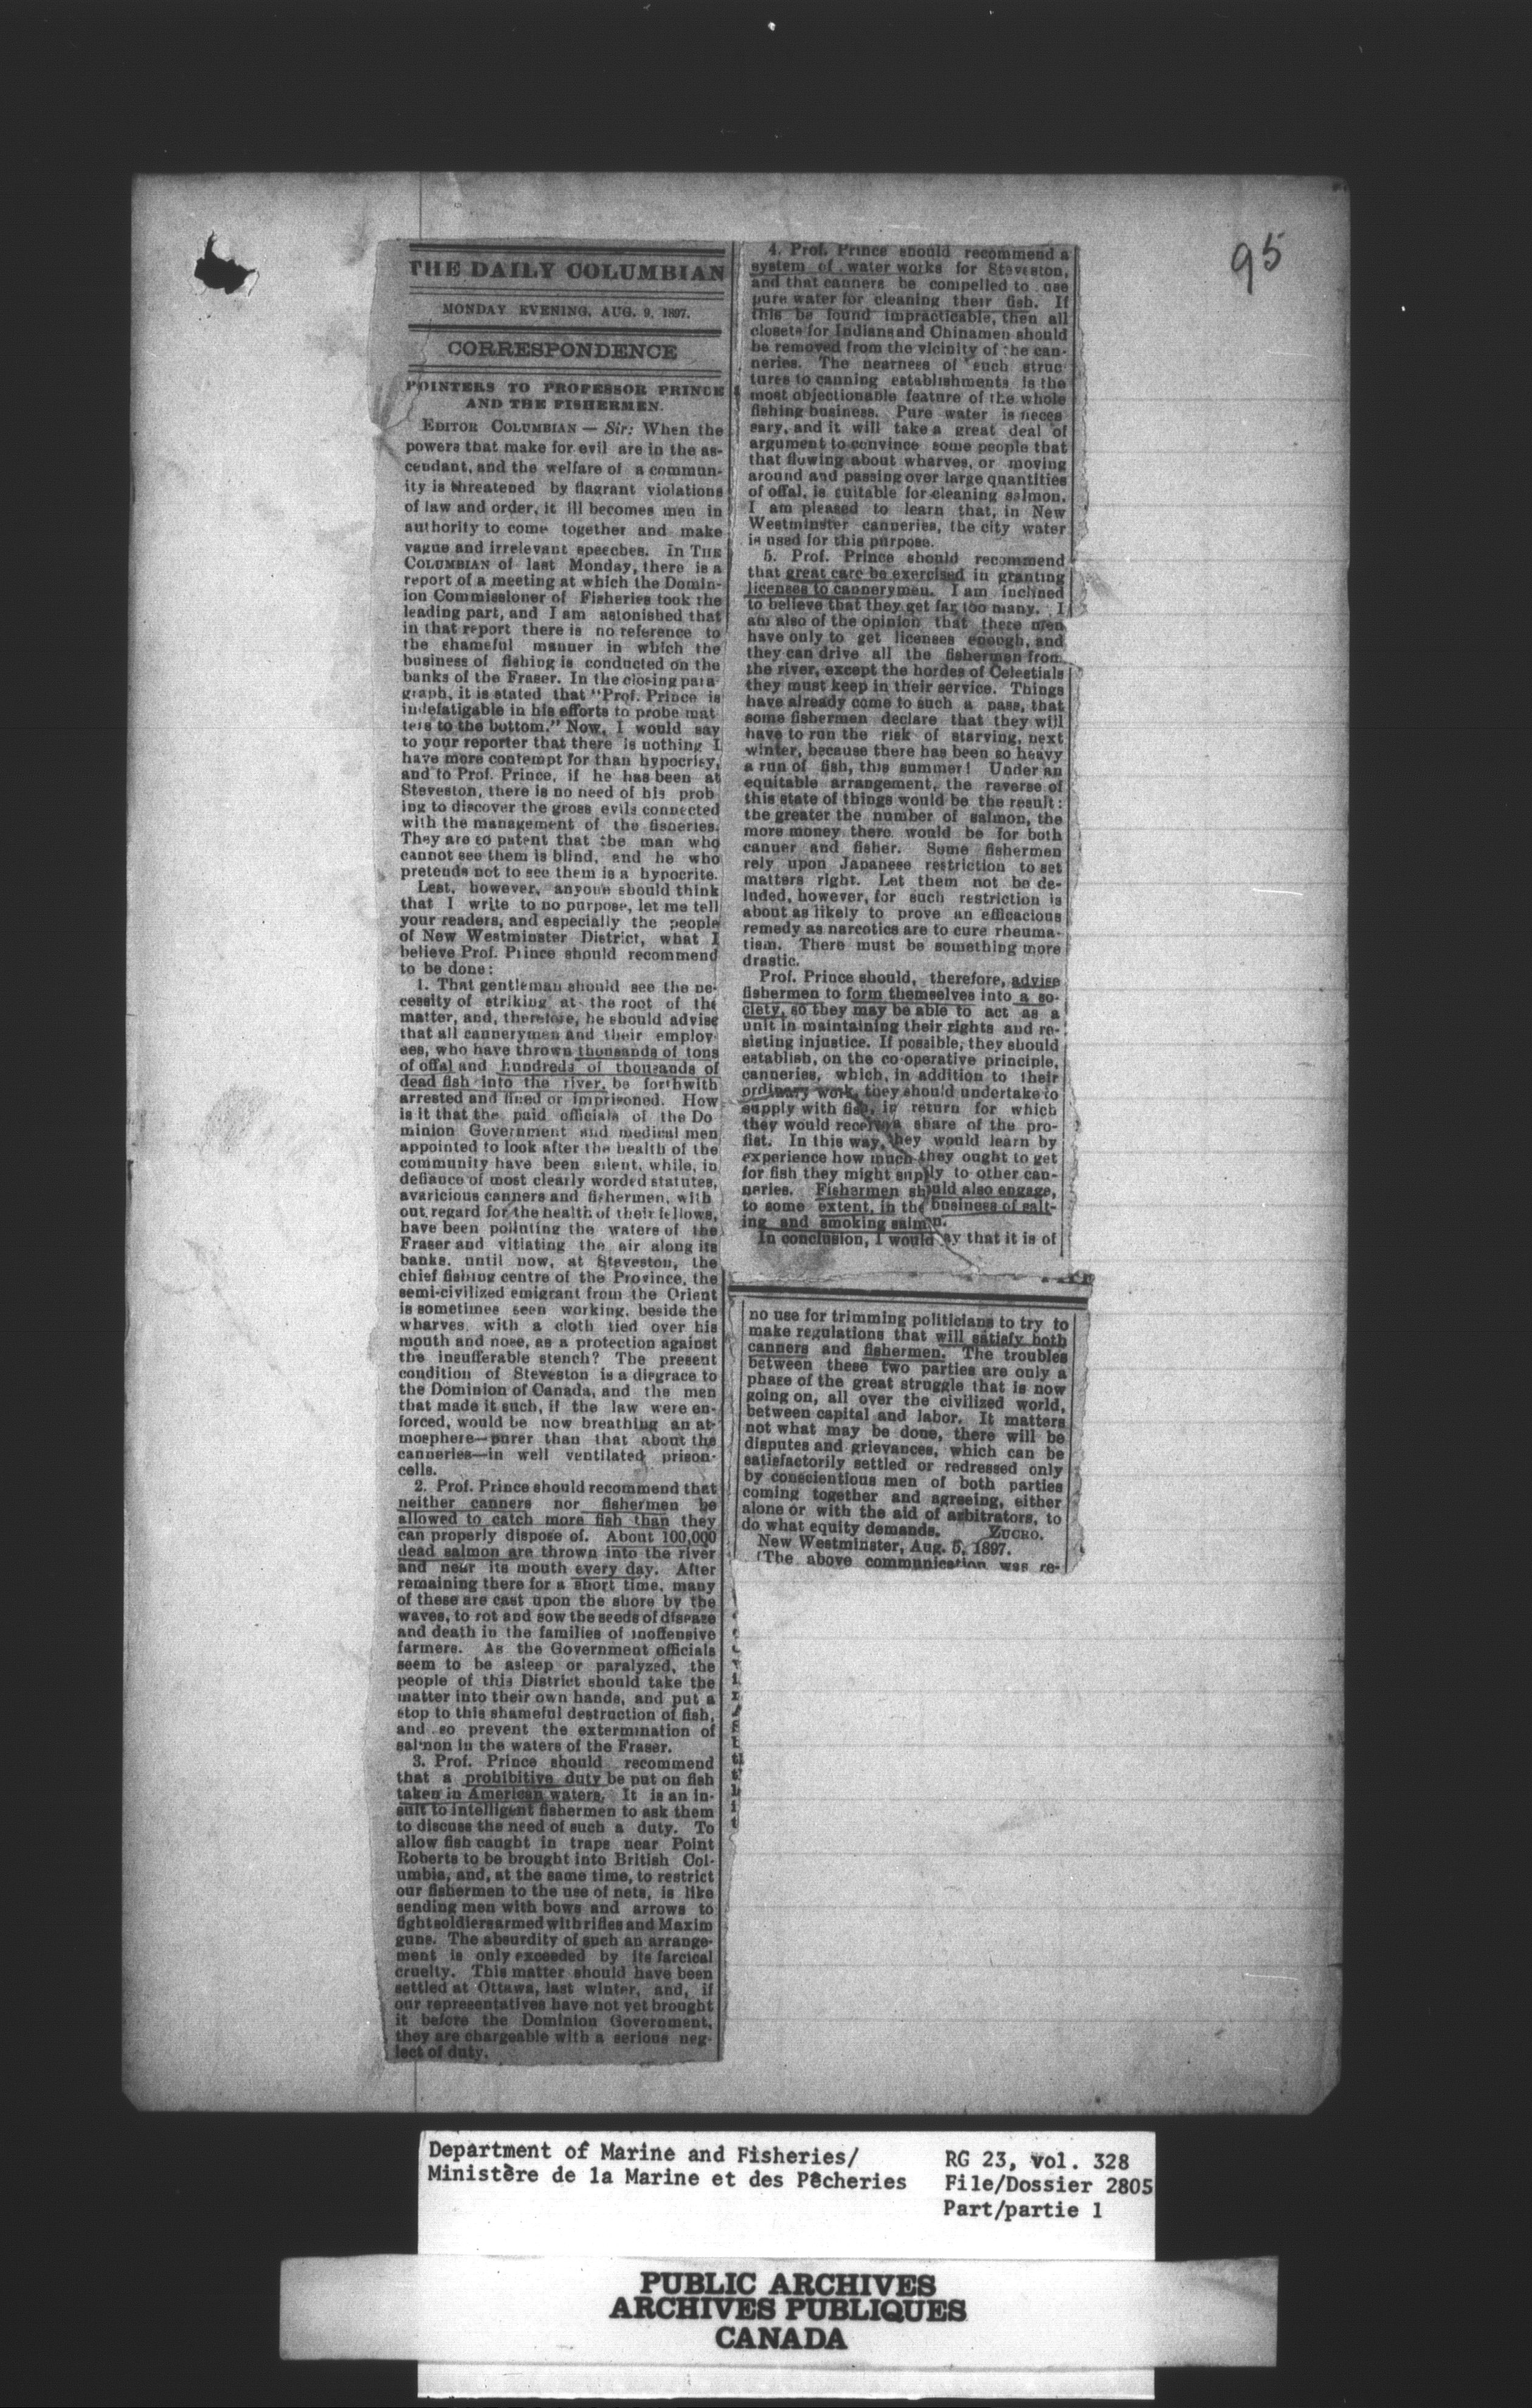 95
THE DAILY COLUMBIAN
MONDAY EVENING, AUG. 9, 1897.
CORRESPONDENCE
POINTERS TO PROFESSOR PRINCE
AND THE FISHERMEN.
EDITOR COLUMBIAN — Sir: When the
powers that make for evil are in the as-
cendant, and the welfare of a commun-
ity is threatened by flagrant violations
of law and order, it ill becomes men in
authority to come together and make
vague and irrelevant speeches. In THE
COLUMBIAN of last Monday, there is a
report of a meeting at which the Domin-
ion Commissioner of Fisheries took the
leading part, and I am astonished that
in that report there is no reference to
the shameful manner in which the
business of fishing is conducted on the
banks of the Fraser. In the closing para-
graph, it is stated that "Prof. Prince is
indefatigable in his efforts to probe mat
ters to the bottom." Now, I would say
to your reporter that there is nothing I
have more contempt for than hypocrisy,
and to Prof. Prince, if he has been at
Steveston, there is no need of his prob
ing to discover the gross evils connected
with the management of the fisheries.
They are to patent that the man who
cannot see them is blind, and he who
pretends not to see them is a hypocrite.
Lest, however, anyone should think
that I write to no purpose, let me tell
your readers, and especially the people
of New Westminster District, what I
believe Prof. Prince should recommend
to be done:
1. That gentleman should see the ne-
cessity of striking at the root of the
matter, and, therefore, he should advise
that all cannerymen and their employ-
ees, who have thrown thousands of tons
of offal and hundreds of thousands of
dead fish into the river, be forthwith
arrested and fined or imprisoned. How
is it that the paid officials of the Do
minion Government and medical men
appointed to look after the health of the
community have been silent, while, in
defiance of most clearly worded statutes,
avaricious canners and fishermen, with
out regard for the health of their fellows,
have been polluting the waters of the
Fraser and vitiating the air along its
banks, until now, at Steveston, the
chief fishing centre of the Province, the
semi-civilized emigrant from the Orient
is sometimes seen working, beside the
wharves, with a cloth tied over his
mouth and nose, as a protection against
the insufferable stench? The present
condition of Steveston is a disgrace to
the Dominion of Canada, and the men
that made it such, if the law were en-
forced, would be now breathing an at-
mosphere—purer than that about the
canneries—in well ventilated prison-
cells.
2. Prof. Prince should recommend that
neither canners nor fishermen be
allowed to catch more fish than they
can properly dispose of. About 100,000
dead salmon are thrown into the river
and near its mouth every day. After
remaining there for a short time, many
of these are cast upon the shore by the
waves, to rot and sow the seeds of disease
and death in the families of inoffensive
farmers. As the Government officials
seem to be asleep or paralyzed, the
people of this District should take the
matter into their own hands, and put a
stop to this shameful destruction of fish,
and so prevent the extermination of
salmon in the waters of the Fraser.
3. Prof. Prince should recommend
that a prohibitive duty be put on fish
taken in American waters. It is an in-
sult to intelligent fishermen to ask them
to discuss the need of such a duty. To
allow fish caught in traps near Point
Roberts to be brought into British Col-
umbia, and, at the same time, to restrict
our fishermen to the use of nets, is like
sending men with bows and arrows to
fight soldiers armed with rifles and Maxim
guns. The absurdity of such an arrange-
ment is only exceeded by its farcical
cruelty. This matter should have been
settled at Ottawa, last winter, and, if
our representatives have not yet brought
it before the Dominion Government,
they are chargeable with a serious neg-
lect of duty.
4. Prof. Prince should recommend a
system of water works for Steveston,
and that canners be compelled to use
pure water for cleaning their fish. If
this be found impracticable, then all
closets for Indians and Chinamen should
be removed from the vicinity of the can-
neries. The nearness of such struc
tures to canning establishments is the
most objectionable feature of the whole
fishing business. Pure water is neces
sary, and it will take a great deal of
argument to convince some people that
that flowing about wharves, or moving
around and passing over large quantities
of offal, is suitable for cleaning salmon.
I am pleased to learn that, in New
Westminster canneries, the city water
is used for this purpose.
5. Prof. Prince should recommend
that great care be exercised in granting
licenses to cannerymen. I am inclined
to believe that they get far too many. I
am also of the opinion that these men
have only to get licenses enough, and
they can drive all the fishermen from
the river, except the hordes of Celestials
they must keep in their service. Things
have already come to such a pass, that
some fishermen declare that they will
have to run the risk of starving, next
winter, because there has been so heavy
a run of fish, this summer! Under an
equitable arrangement, the reverse of
this state of things would be the result:
the greater the number of salmon, the
more money there would be for both
canner and fisher. Some fishermen
rely upon Japanese restriction to set
matters right. Let them not be de-
luded, however, for such restriction is
about as likely to prove an efficacious
remedy as narcotics are to cure rheuma-
tism. There must be something more
drastic.
Prof. Prince should, therefore, advise
fishermen to form themselves into a so-
ciety, so they may be able to act as a
unit in maintaining their rights and re-
sisting injustice. If possible, they should
establish, on the co-operative principle,
canneries, which, in addition to their
ordinary work, they should undertake to
supply with fish, in return for which
they would receive a share of the pro-
fist. In this way, they would learn by
experience how much they ought to get
for fish they might supply to other can-
neries. Fishermen should also engage,
to some extent, in the business of salt-
ing and smoking salmon.
In conclusion, I would say that it is of
no use for trimming politicians to try to
make regulations that will satisfy both
canners and fishermen. The troubles
between these two parties are only a
phase of the great struggle that is now
going on, all over the civilized world,
between capital and labor. It matters
not what may be done, there will be
disputes and grievances, which can be
satisfactorily settled or redressed only
by conscientious men of both parties
coming together and agreeing, either
alone or with the aid of arbitrators, to
do what equity demands. ZUCRO.
New Westminster, Aug. 5, 1897.
(The above communication was re-
Department of Marine and Fisheries/
Ministère de la Marine et des Pêcheries
RG 23, vol. 328
File/Dossier 2805
Part/partie 1
PUBLIC ARCHIVES
ARCHIVES PUBLIQUES
CANADA